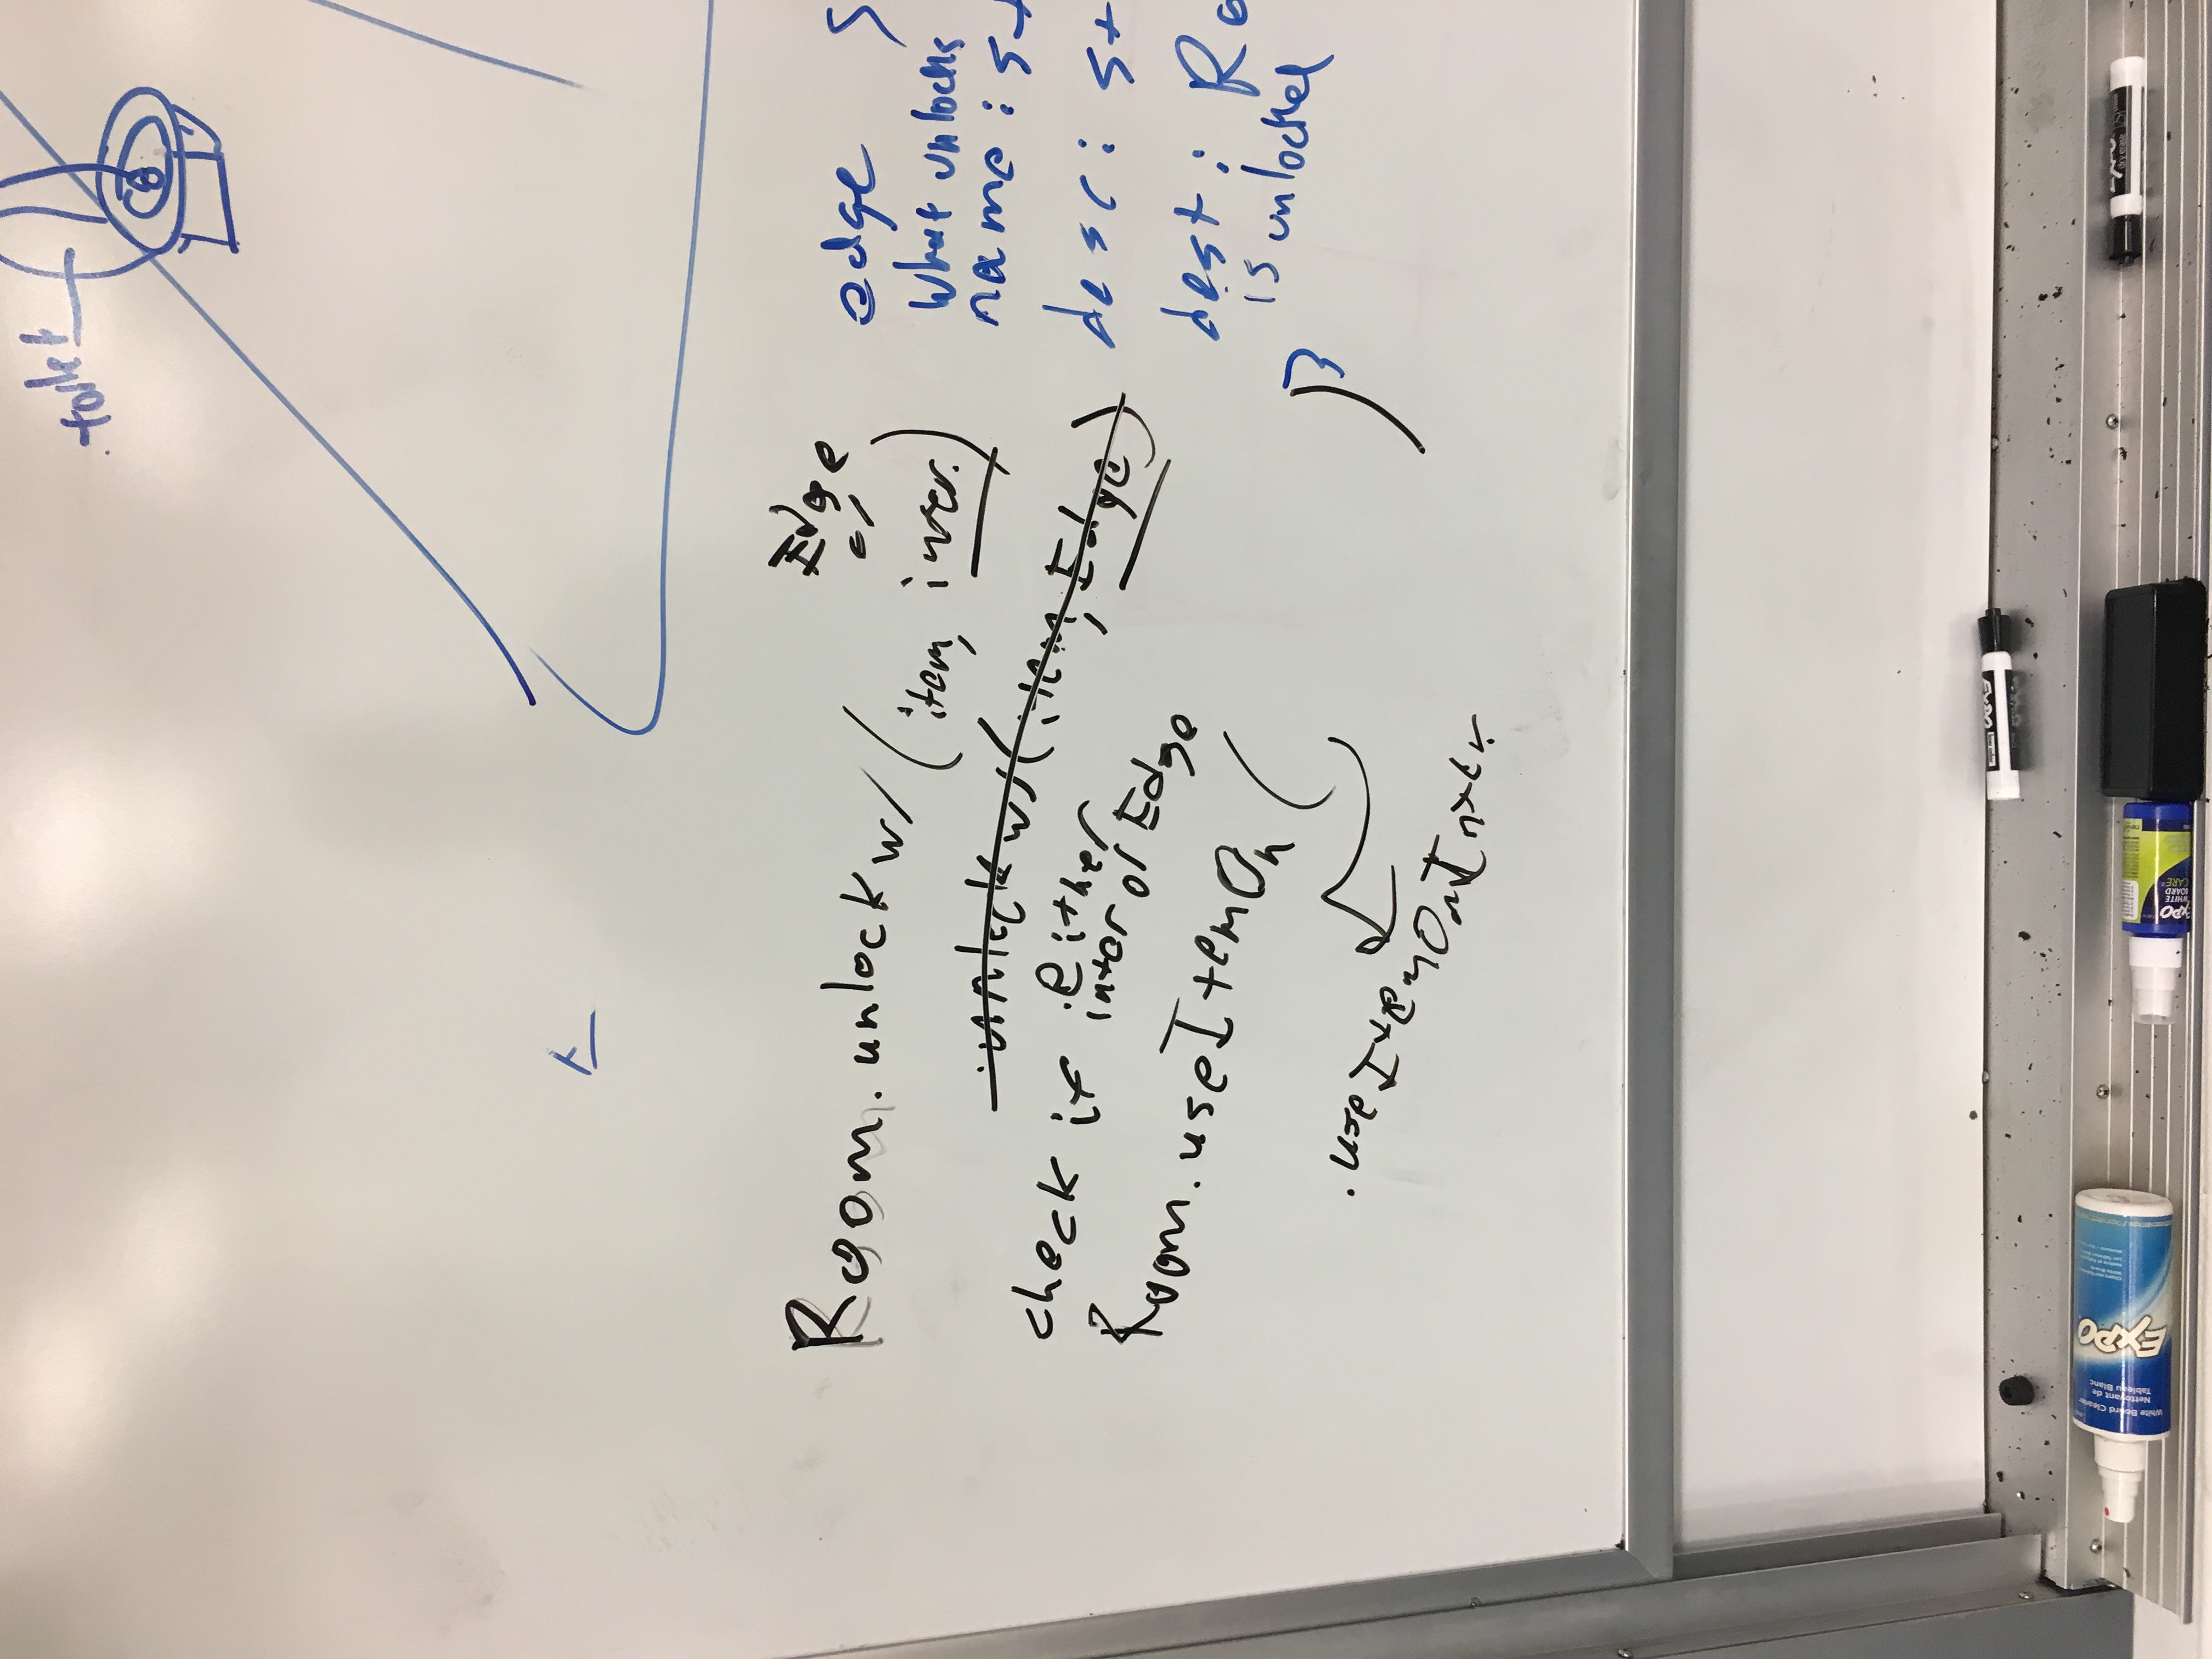 toilet
Edge
or
Room.unlock w/ (item, inter.)
.unlock w/ (item, Edge)
check if either
inter or Edge
Room.useItemOn (
)
.useItemOnInxtr.
edge
What unlocks
name : st
desc : st
dest : Ro
is unlocked
}
EXPO
White Board Cleaner
Nettoyant de
Tableau Blanc
EXPO
WHITE
BOARD
CARE
EXPO
EXPO
dry erase